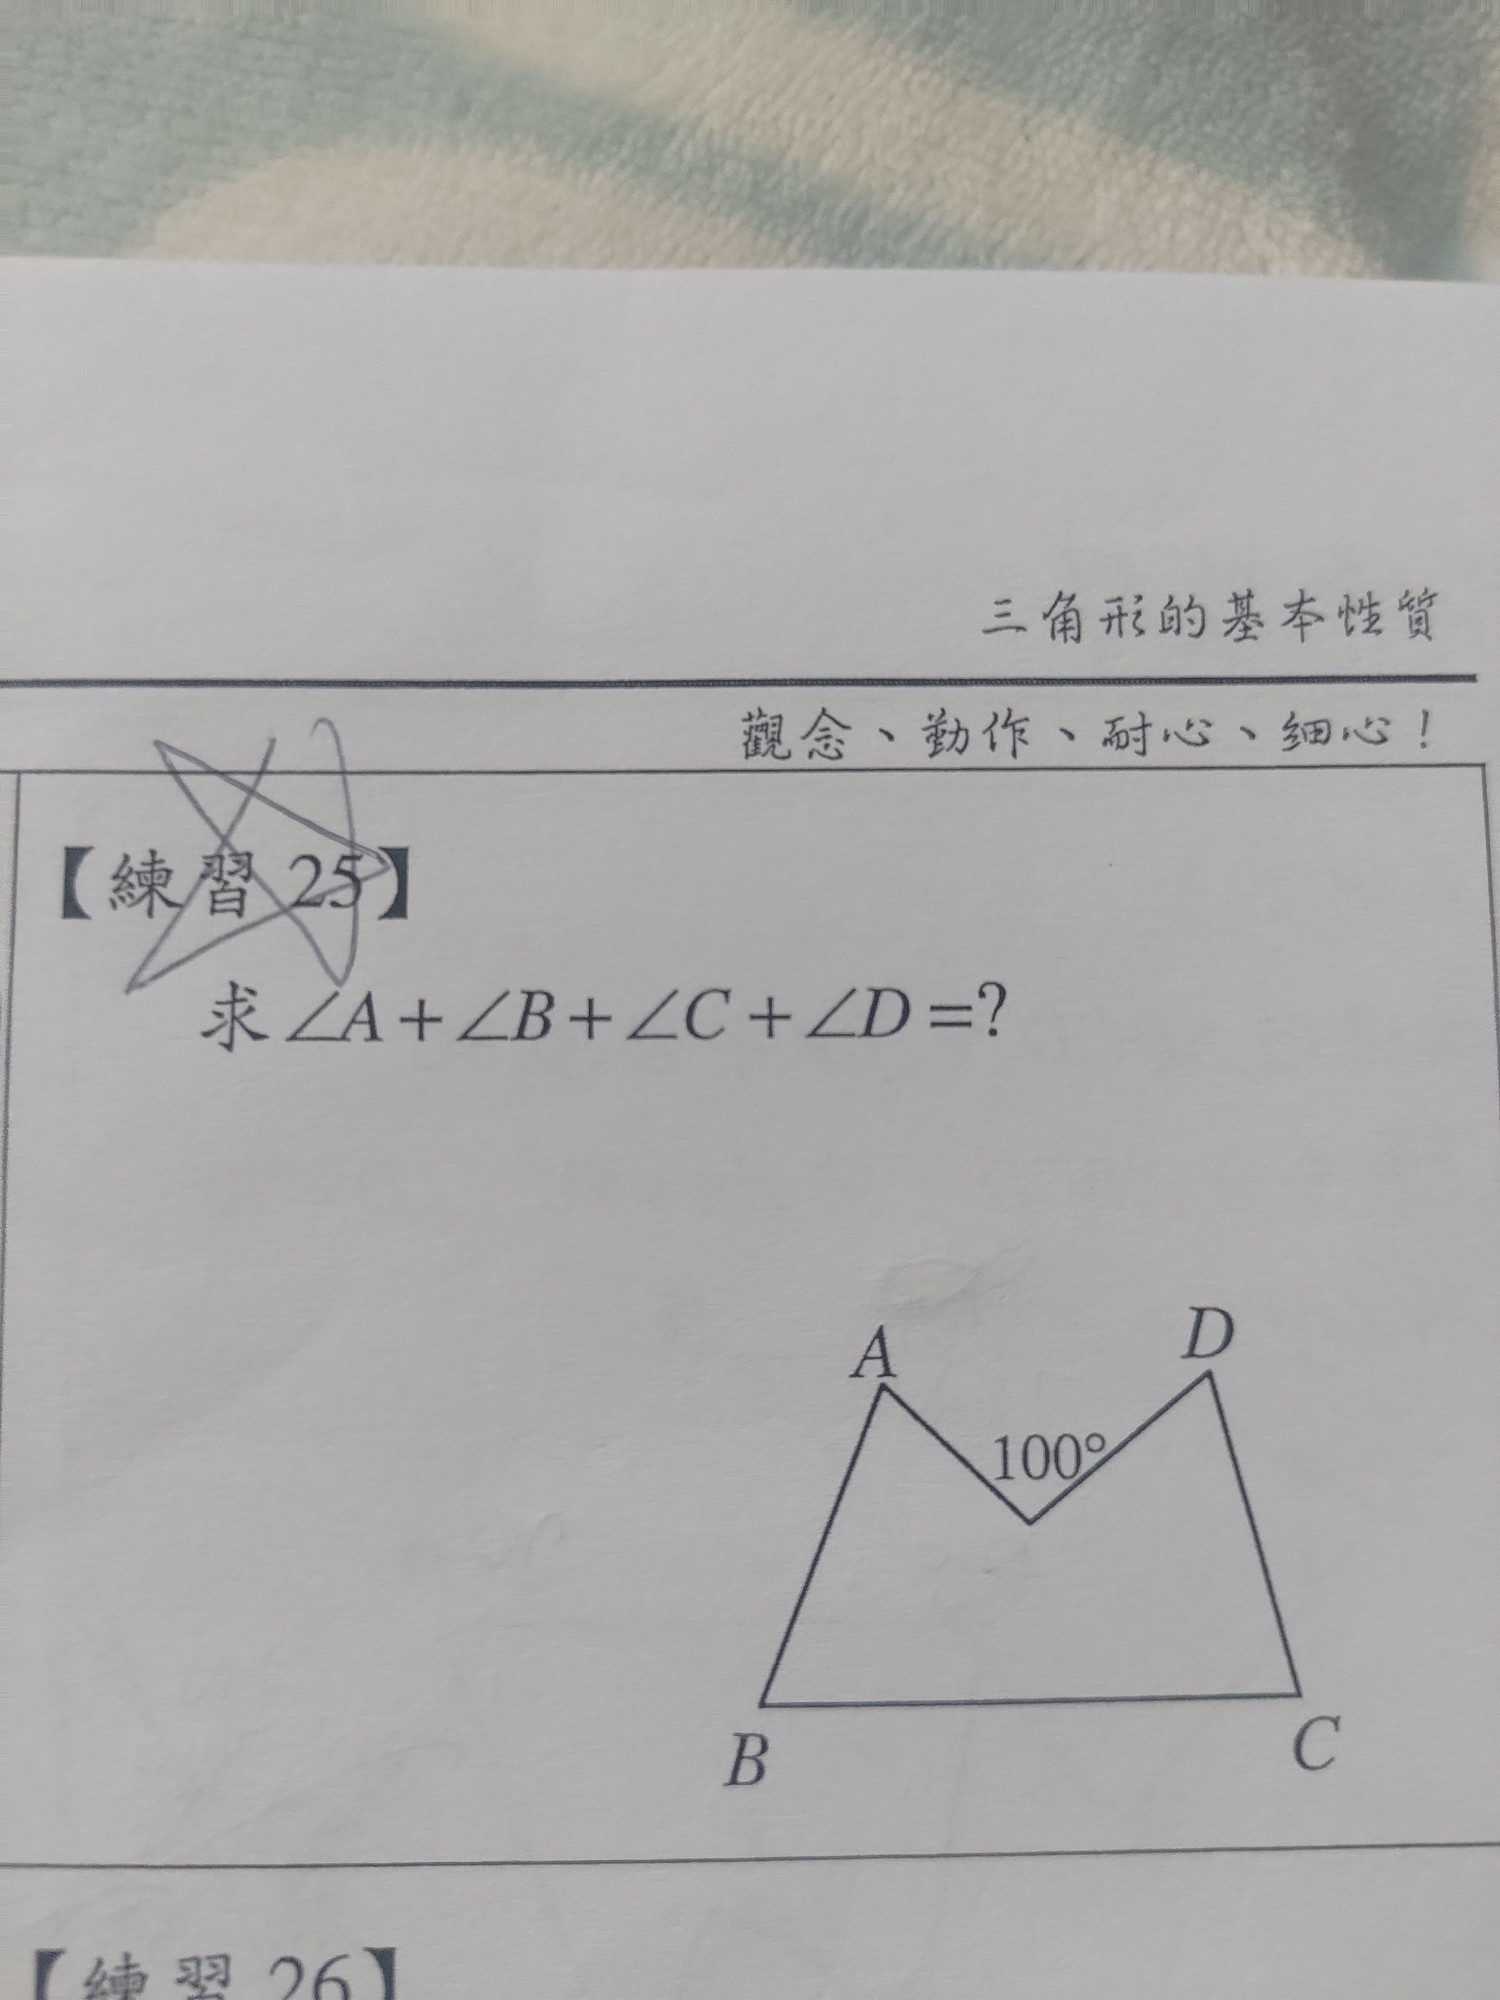 三角形的基本性質
觀念、勤作、耐心、細心！
【練習 25】
求 ∠A + ∠B + ∠C + ∠D =?
A
D
100°
B
C
【練習 26】